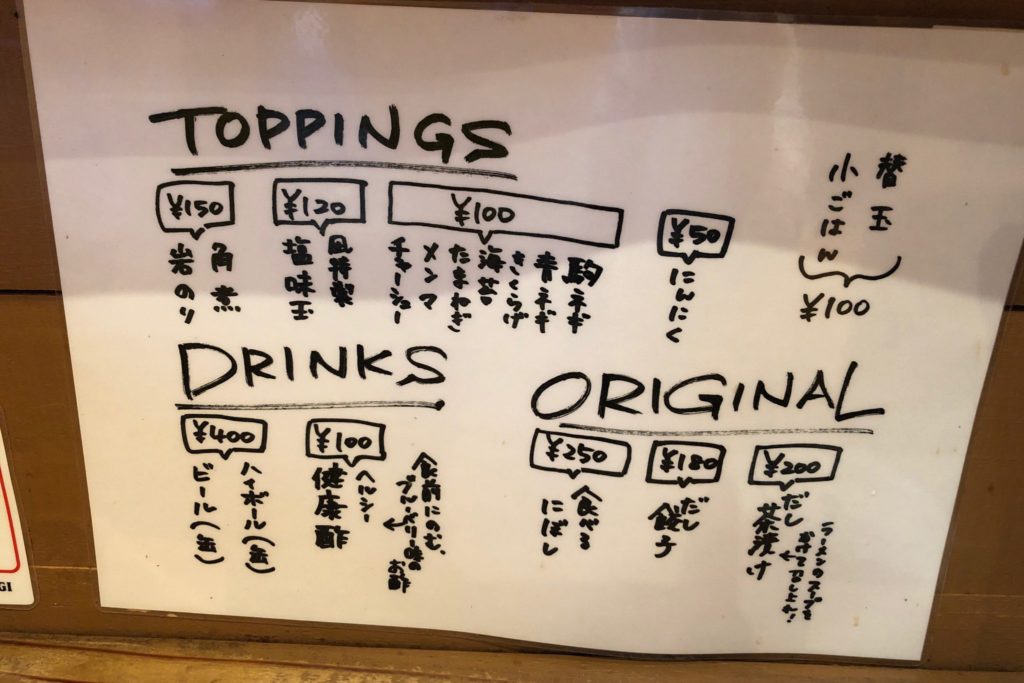 TOPPINGS
¥150
角煮
岩のり
¥120
風特製
塩味玉
¥100
駒ネギ
青ネギ
きくらげ
海苔
たまねぎ
メンマ
チャーシュー
¥50
にんにく
替玉
小ごはん
¥100
DRINKS
¥400
ハイボール(缶)
ビール(缶)
¥100
食前にのむ、
ブルーベリー味の
お酢
ヘルシー
健康酢
ORIGINAL
¥250
食べる
にぼし
¥180
だし
餃子
¥200
だし
茶漬け
ラーメンのスープを
かけて召し上がれ!
GI